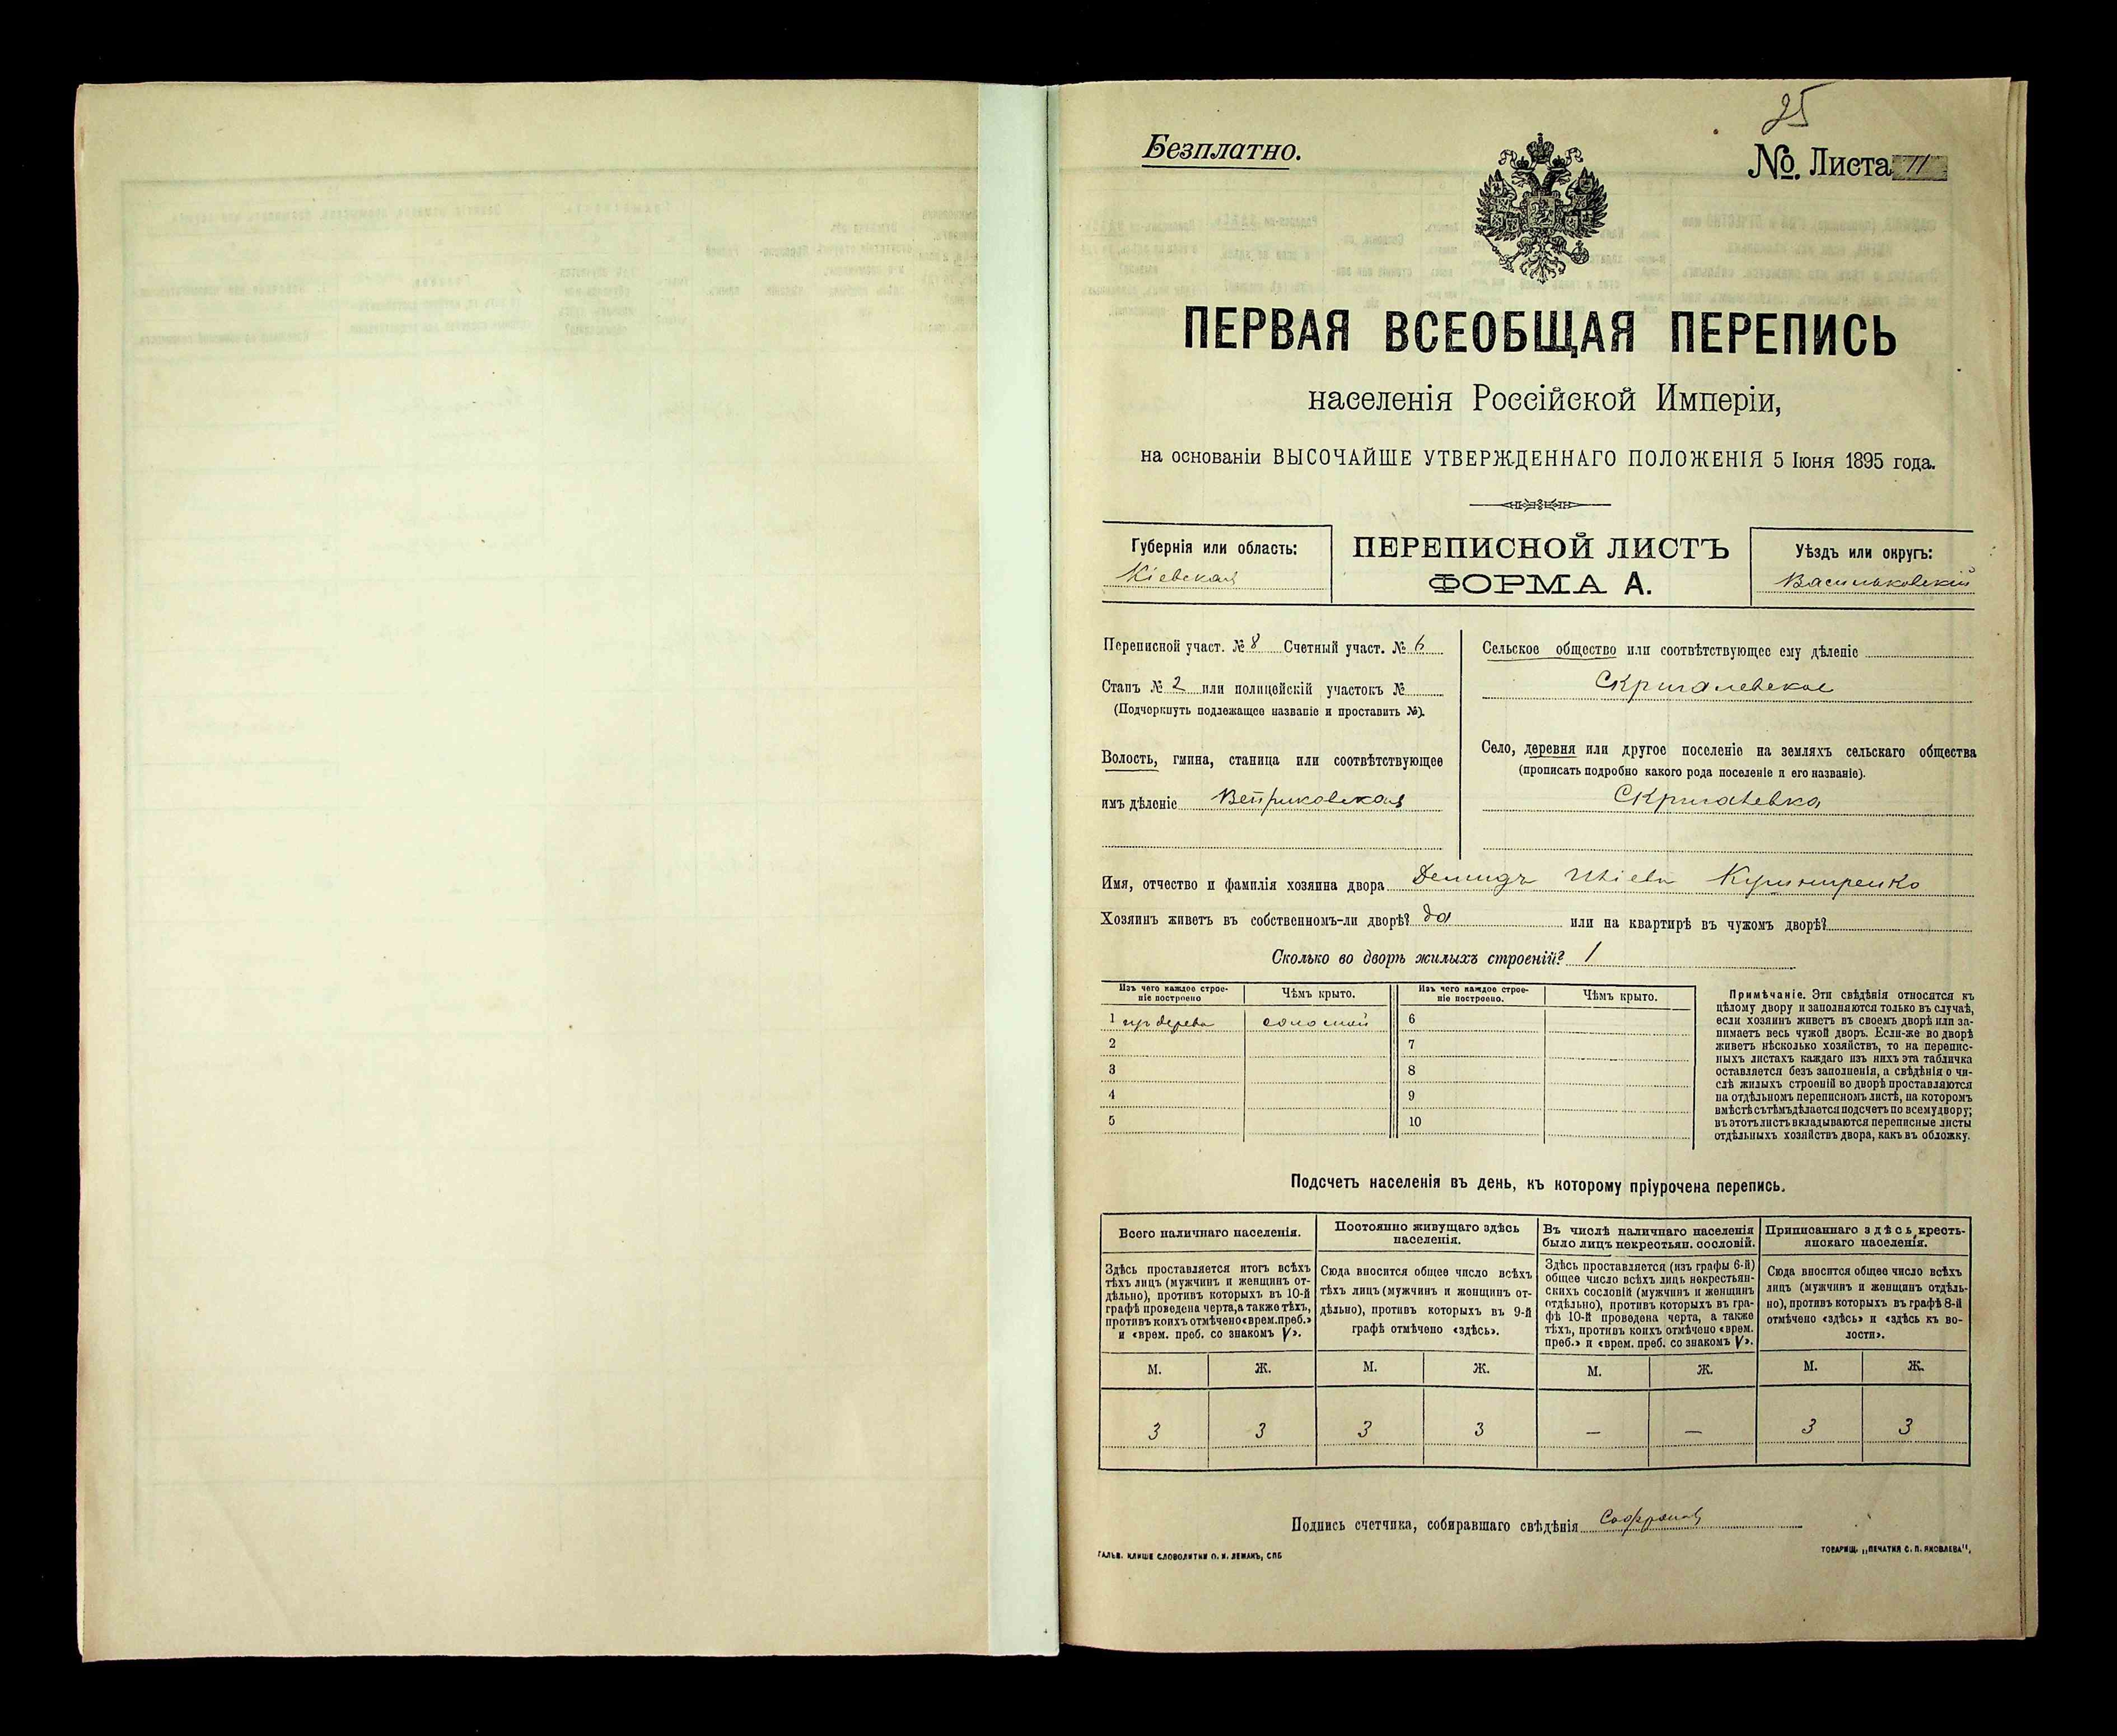 25
Безплатно.
№. Листа 11
ПЕРВАЯ ВСЕОБЩАЯ ПЕРЕПИСЬ
населенія Россійской Имперіи,
на основаніи ВЫСОЧАЙШЕ УТВЕРЖДЕННАГО ПОЛОЖЕНІЯ 5 Іюня 1895 года.
Губернія или область:
Кіевская
ПЕРЕПИСНОЙ ЛИСТЪ
ФОРМА А.
Уѣздъ или округъ:
Васильковскій
Переписной участ. № 8 Счетный участ. № 6
Станъ № 2 или полицейскій участокъ №
(Подчеркнуть подлежащее названіе и проставить №).
Волость, гмина, станица или соотвѣтствующее
имъ дѣленіе Веприковская
Сельское общество или соотвѣтствующее ему дѣленіе
Скригалевское
Село, деревня или другое поселеніе на земляхъ сельскаго общества
(прописать подробно какого рода поселеніе и его названіе).
Скригалевка
Имя, отчество и фамилія хозяина двора Демидъ
Хозяинъ живетъ въ собственномъ-ли дворѣ? да или на квартирѣ въ чужомъ дворѣ?
Сколько во дворѣ жилыхъ строеній? 1
Изъ чего каждое строе-
ніе построено
Чѣмъ крыто.
Изъ чего каждое строе-
ніе построено.
Чѣмъ крыто.
1 изъ дерева соломой 6
2 7
3 8
4 9
5 10
Примѣчаніе. Эти свѣдѣнія относятся къ
цѣлому двору и заполняются только въ случаѣ,
если хозяинъ живетъ въ своемъ дворѣ или за-
нимаетъ весь чужой дворъ. Если-же во дворѣ
живетъ нѣсколько хозяйствъ, то на перепис-
ныхъ листахъ каждаго изъ нихъ эта табличка
оставляется безъ заполненія, а свѣдѣнія о чи-
слѣ жилыхъ строеній во дворѣ проставляются
на отдѣльномъ переписномъ листѣ, на которомъ
вмѣстѣ съ тѣмъ дѣлается подсчетъ по всему двору;
въ этотъ листъ вкладываются переписные листы
отдѣльныхъ хозяйствъ двора, какъ въ обложку.
Подсчетъ населенія въ день, къ которому пріурочена перепись.
Всего наличнаго населенія.
Здѣсь проставляется итогъ всѣхъ
тѣхъ лицъ (мужчинъ и женщинъ от-
дѣльно), противъ которыхъ въ 10-й
графѣ проведена черта, а также тѣхъ,
противъ коихъ отмѣчено «врем. преб.»
и «врем. преб. со знакомъ V».
Постоянно живущаго здѣсь
населенія.
Сюда вносится общее число всѣхъ
тѣхъ лицъ (мужчинъ и женщинъ от-
дѣльно), противъ которыхъ въ 9-й
графѣ отмѣчено «здѣсь».
Въ числѣ наличнаго населенія
было лицъ некрестьян. сословій.
Здѣсь проставляется (изъ графы 6-й)
общее число всѣхъ лицъ некрестьян-
скихъ сословій (мужчинъ и женщинъ
отдѣльно), противъ которыхъ въ гра-
фѣ 10-й проведена черта, а также
тѣхъ, противъ коихъ отмѣчено «врем.
преб.» и «врем. преб. со знакомъ V».
Приписаннаго здѣсь кресть-
янскаго населенія.
Сюда вносится общее число всѣхъ
лицъ (мужчинъ и женщинъ отдѣль-
но), противъ которыхъ въ графѣ 8-й
отмѣчено «здѣсь» и «здѣсь къ во-
лости».
М. Ж. М. Ж. М. Ж. М. Ж.
3 3 3 3 — — 3 3
Подпись счетчика, собиравшаго свѣдѣнія
ГАЛЬВ. КЛИШЕ СЛОВОЛИТНИ О. И. ЛЕМАНЪ, СПБ
ТОВАРИЩ. „ПЕЧАТНЯ С. П. ЯКОВЛЕВА".